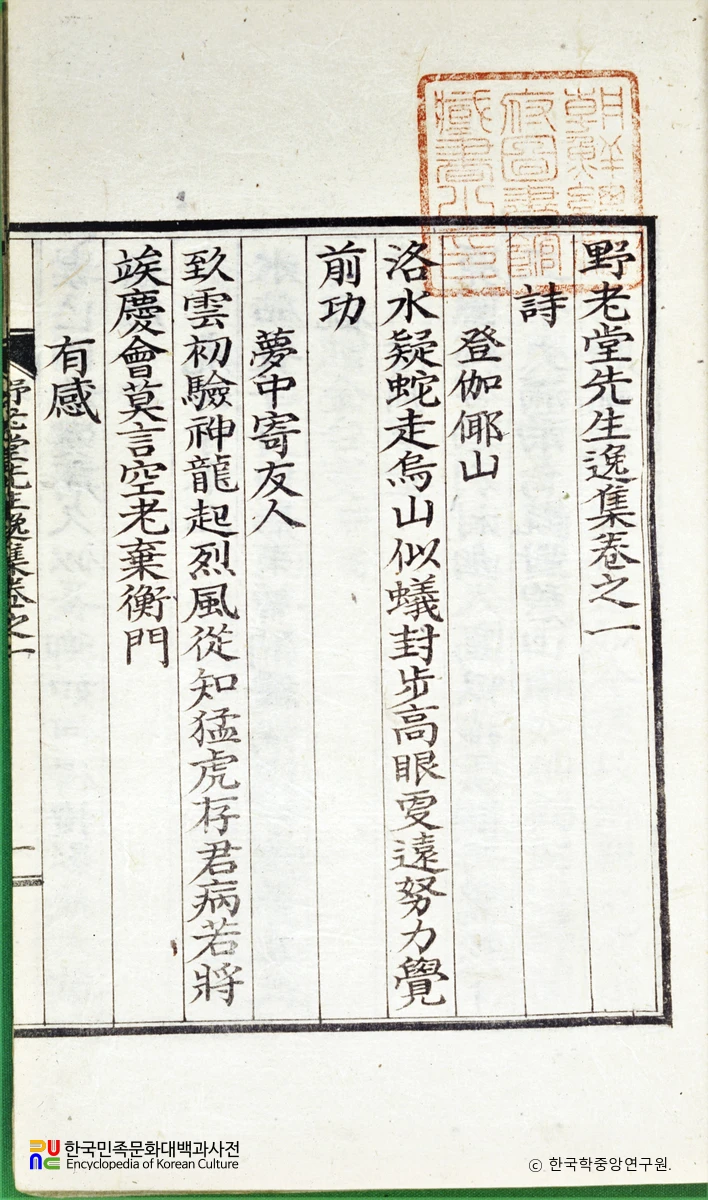 野老堂先生逸集卷之一
詩
登伽倻山
洛水疑蛇走烏山似蟻封步高眼更遠努力覺
前功
夢中寄友人
致雲初驗神龍起烈風從知猛虎存君病若將
竢慶會莫言空老棄衡門
有感
野老堂先生逸集卷之一
一
朝鮮總督
府圖書館
藏書之印
한국민족문화대백과사전
Encyclopedia of Korean Culture
© 한국학중앙연구원.